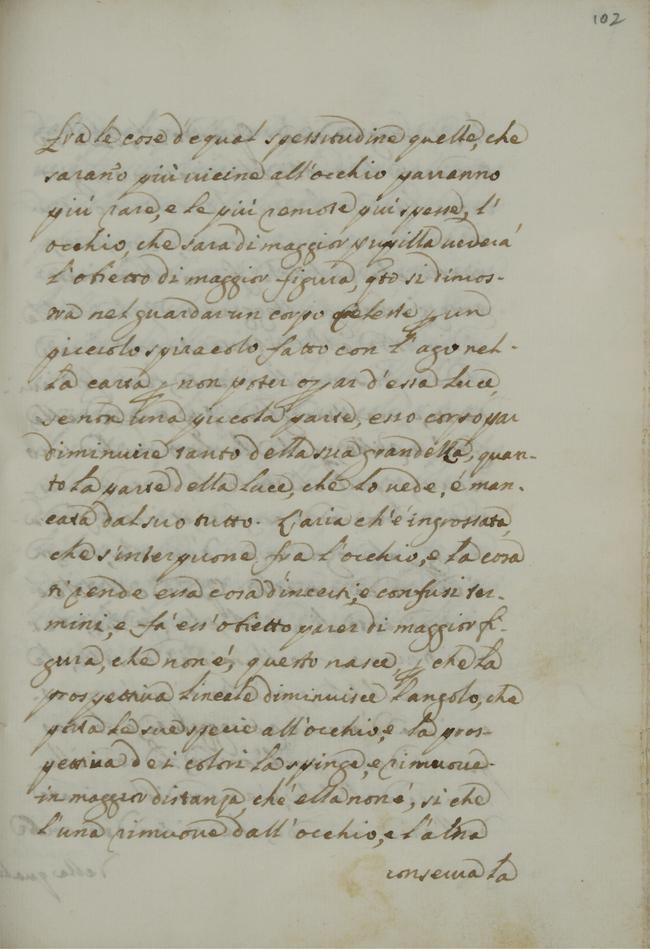 102
Fra le cose d'equal spessitudine quelle, che
saran'o più vicine all'occhio parranno
più rare, e le più remote più spesse, l'
occhio, che sarà di maggior pupilla vederà
l'obietto di maggior figura, qto si dimos-
tra nel guardar un corpo celeste p un
picciolo spiracolo fatto con l'ago nel-
la carta, p non poter opar d'essa luce,
se non una picola parte, esso corpo par
diminuire tanto della sua grandezza, quan-
to la parte della luce, che lo vede, è man-
cata dal suo tutto. L'aria ch'è ingrossata,
che s'interpuone fra l'occhio, e la cosa
ti rende essa cosa d'incerti, e confusi ter-
mini, e fà ess'obietto parer di maggior fi-
gura, che non è, questo nasce, p che la
prospettiva lineale diminuisce l'angolo, che
porta le sue specie all'occhio, e la pros-
pettiva dei colori la spinge, e rimuove
in maggior distanza, che ella non è, si che
l'una rimuove dall'occhio, e l'altra
conserva la